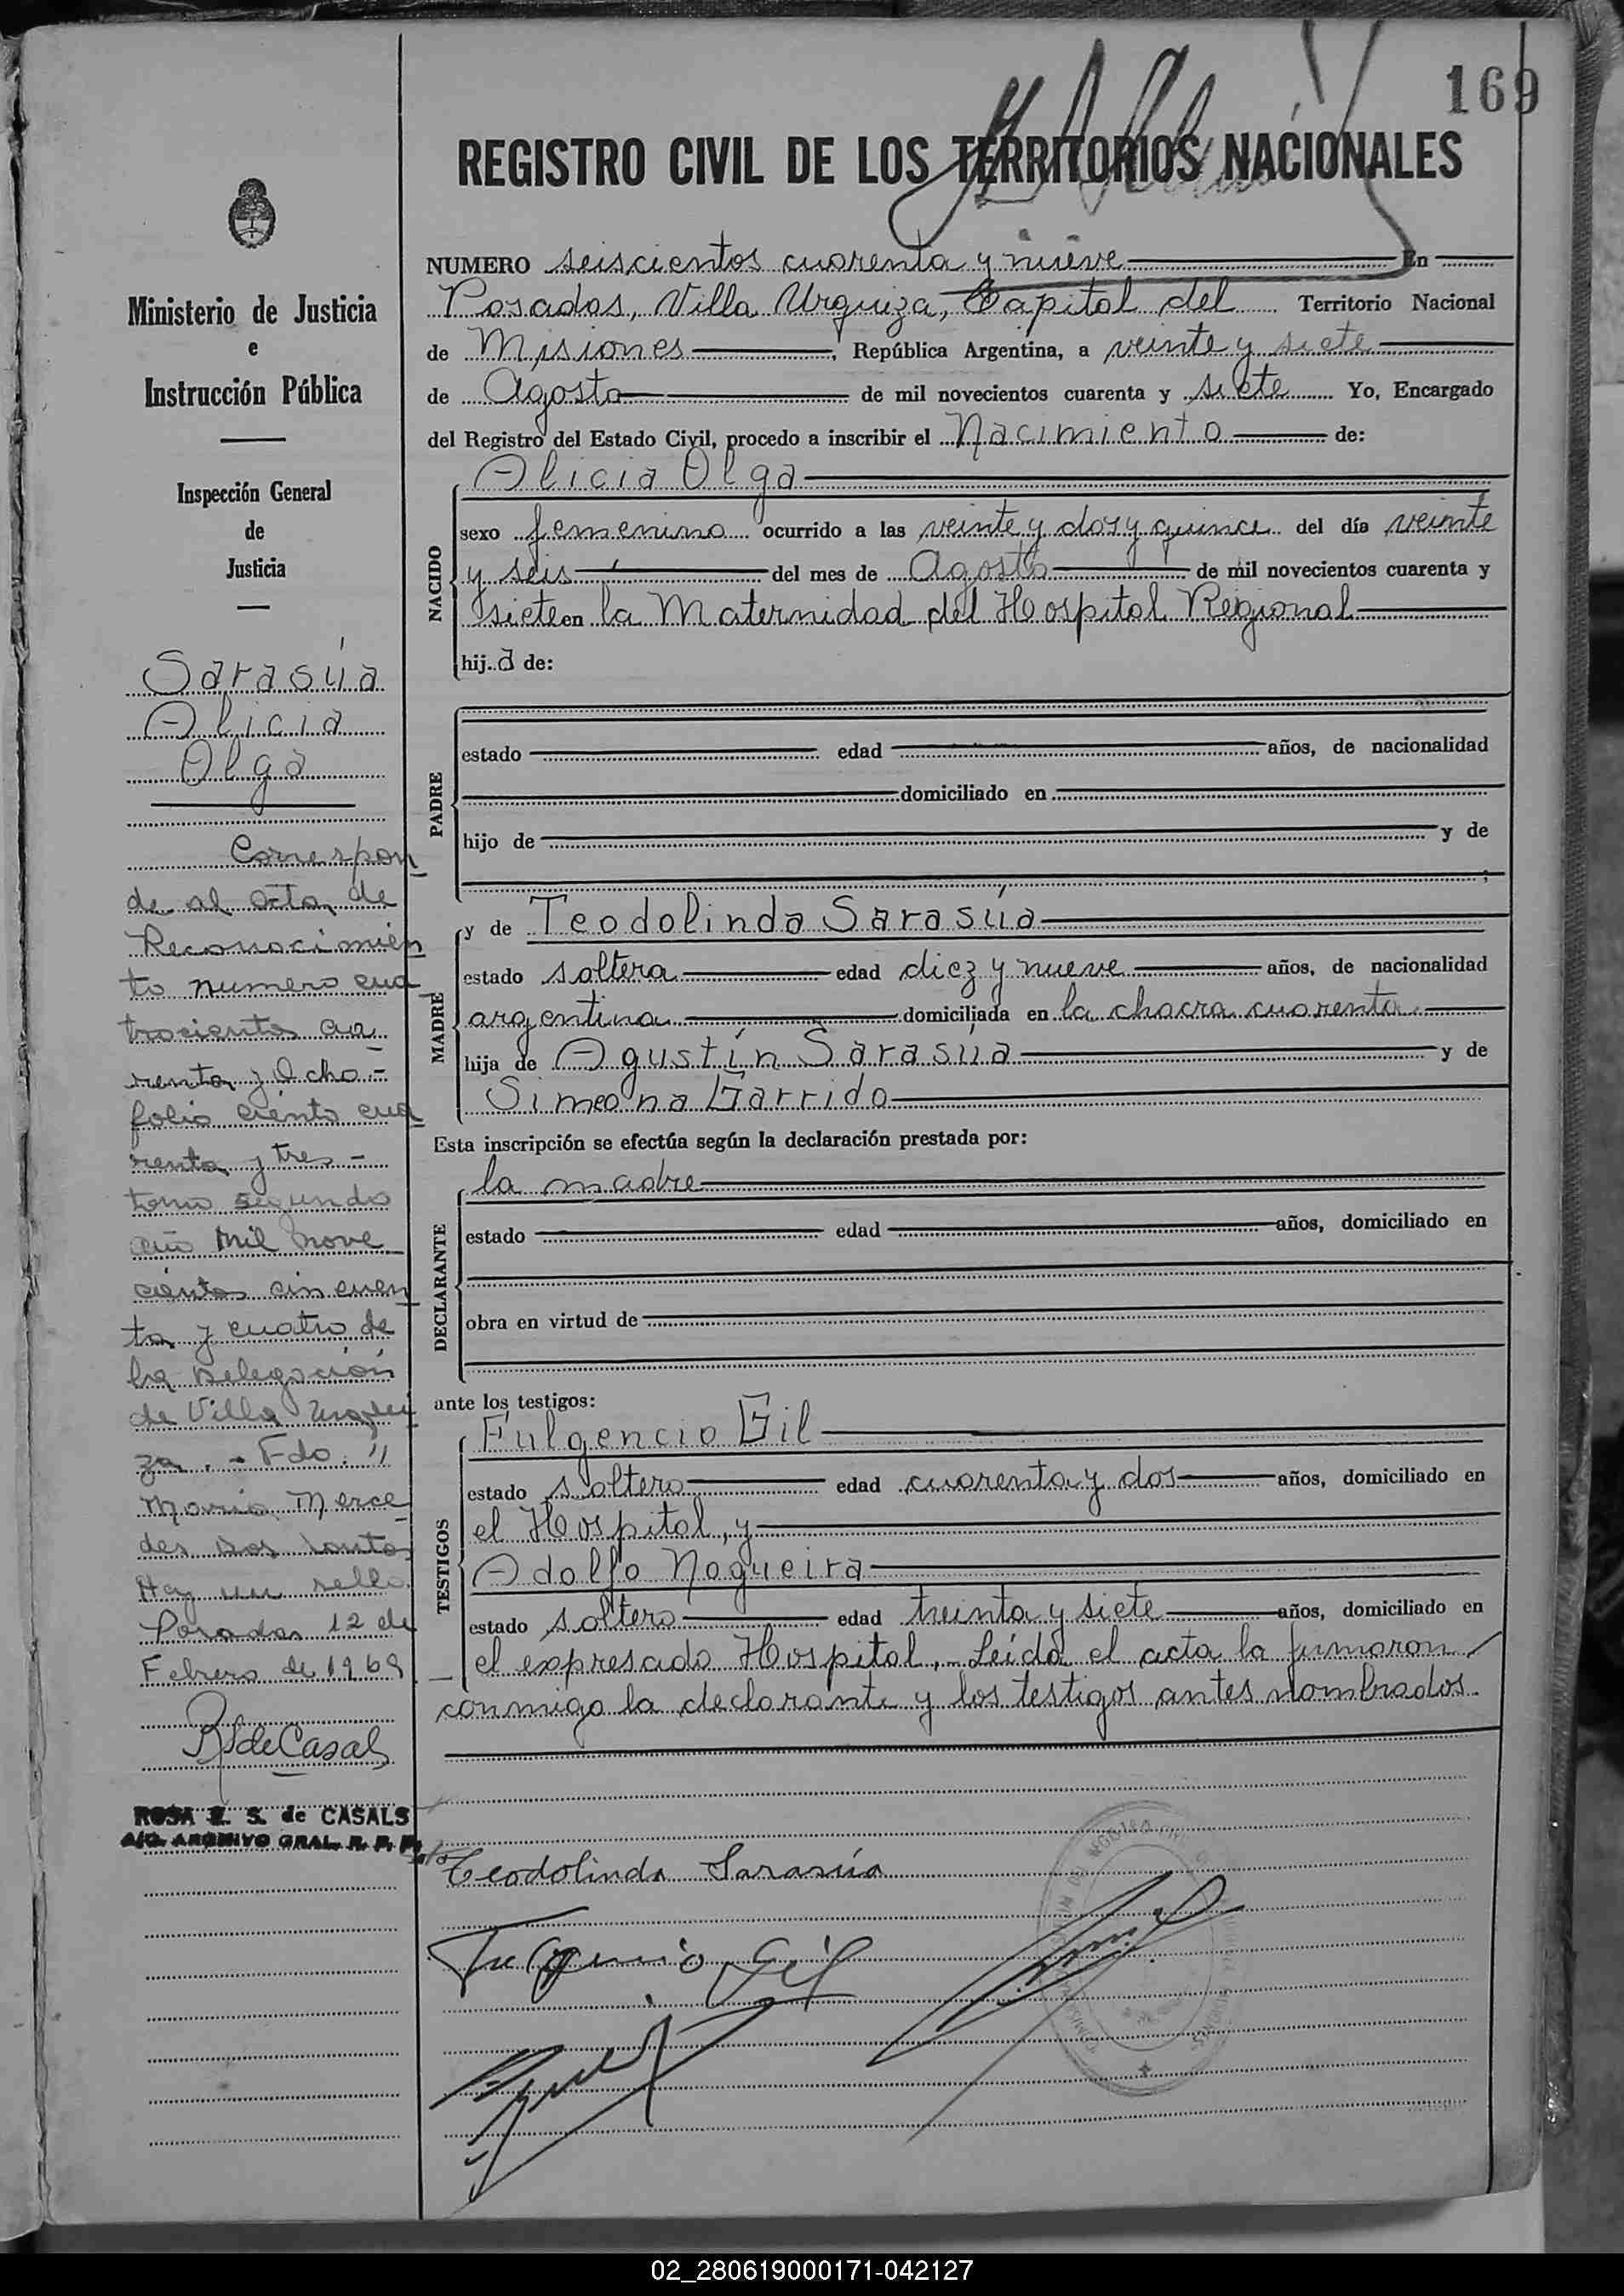 169
REGISTRO CIVIL DE LOS TERRITORIOS NACIONALES
Ministerio de Justicia
e
Instrucción Pública
Inspección General
de
Justicia
Sarasúa
Alicia
Olga
Correspon
de al acta de
Reconocimien
to numero cua
trocientos cua
renta y Ocho -
folio ciento cua
renta y tres -
tomo segundo
año mil nove
cientos cincuen
ta y cuatro de
la Delegación
de Villa Urqui
za. - Fdo: "
Maria Merce
des Dos Santos
Hay un sello
Posadas 12 de
Febrero de 1969
RSdeCasals
ROSA E. S. de CASALS
A/C. ARCHIVO GRAL. R. P. P.
NUMERO seiscientos cuarenta y nueve En
Posadas, Villa Urquiza, Capital del Territorio Nacional
de Misiones, República Argentina, a veinte y siete
de Agosto de mil novecientos cuarenta y siete Yo, Encargado
del Registro del Estado Civil, procedo a inscribir el Nacimiento de:
NACIDO
Alicia Olga
sexo femenino ocurrido a las veinte y dos y quince del día veinte
y seis del mes de Agosto de mil novecientos cuarenta y
siete en la Maternidad del Hospital Regional
hija de:
PADRE
estado edad años, de nacionalidad
domiciliado en
hijo de y de
;
MADRE
y de Teodolinda Sarasúa
estado soltera edad diez y nueve años, de nacionalidad
argentina domiciliada en la chacra cuarenta
hija de Agustín Sarasúa y de
Simeona Garrido
Esta inscripción se efectúa según la declaración prestada por:
DECLARANTE
la madre
estado edad años, domiciliado en
obra en virtud de
ante los testigos:
TESTIGOS
Fulgencio Gil
estado soltero edad cuarenta y dos años, domiciliado en
el Hospital, y
Adolfo Nogueira
estado soltero edad treinta y siete años, domiciliado en
el expresado Hospital. Leída el acta la firmaron
conmigo la declarante y los testigos antes nombrados.
Teodolinda Sarasúa
Fulgencio Gil
02_280619000171-042127